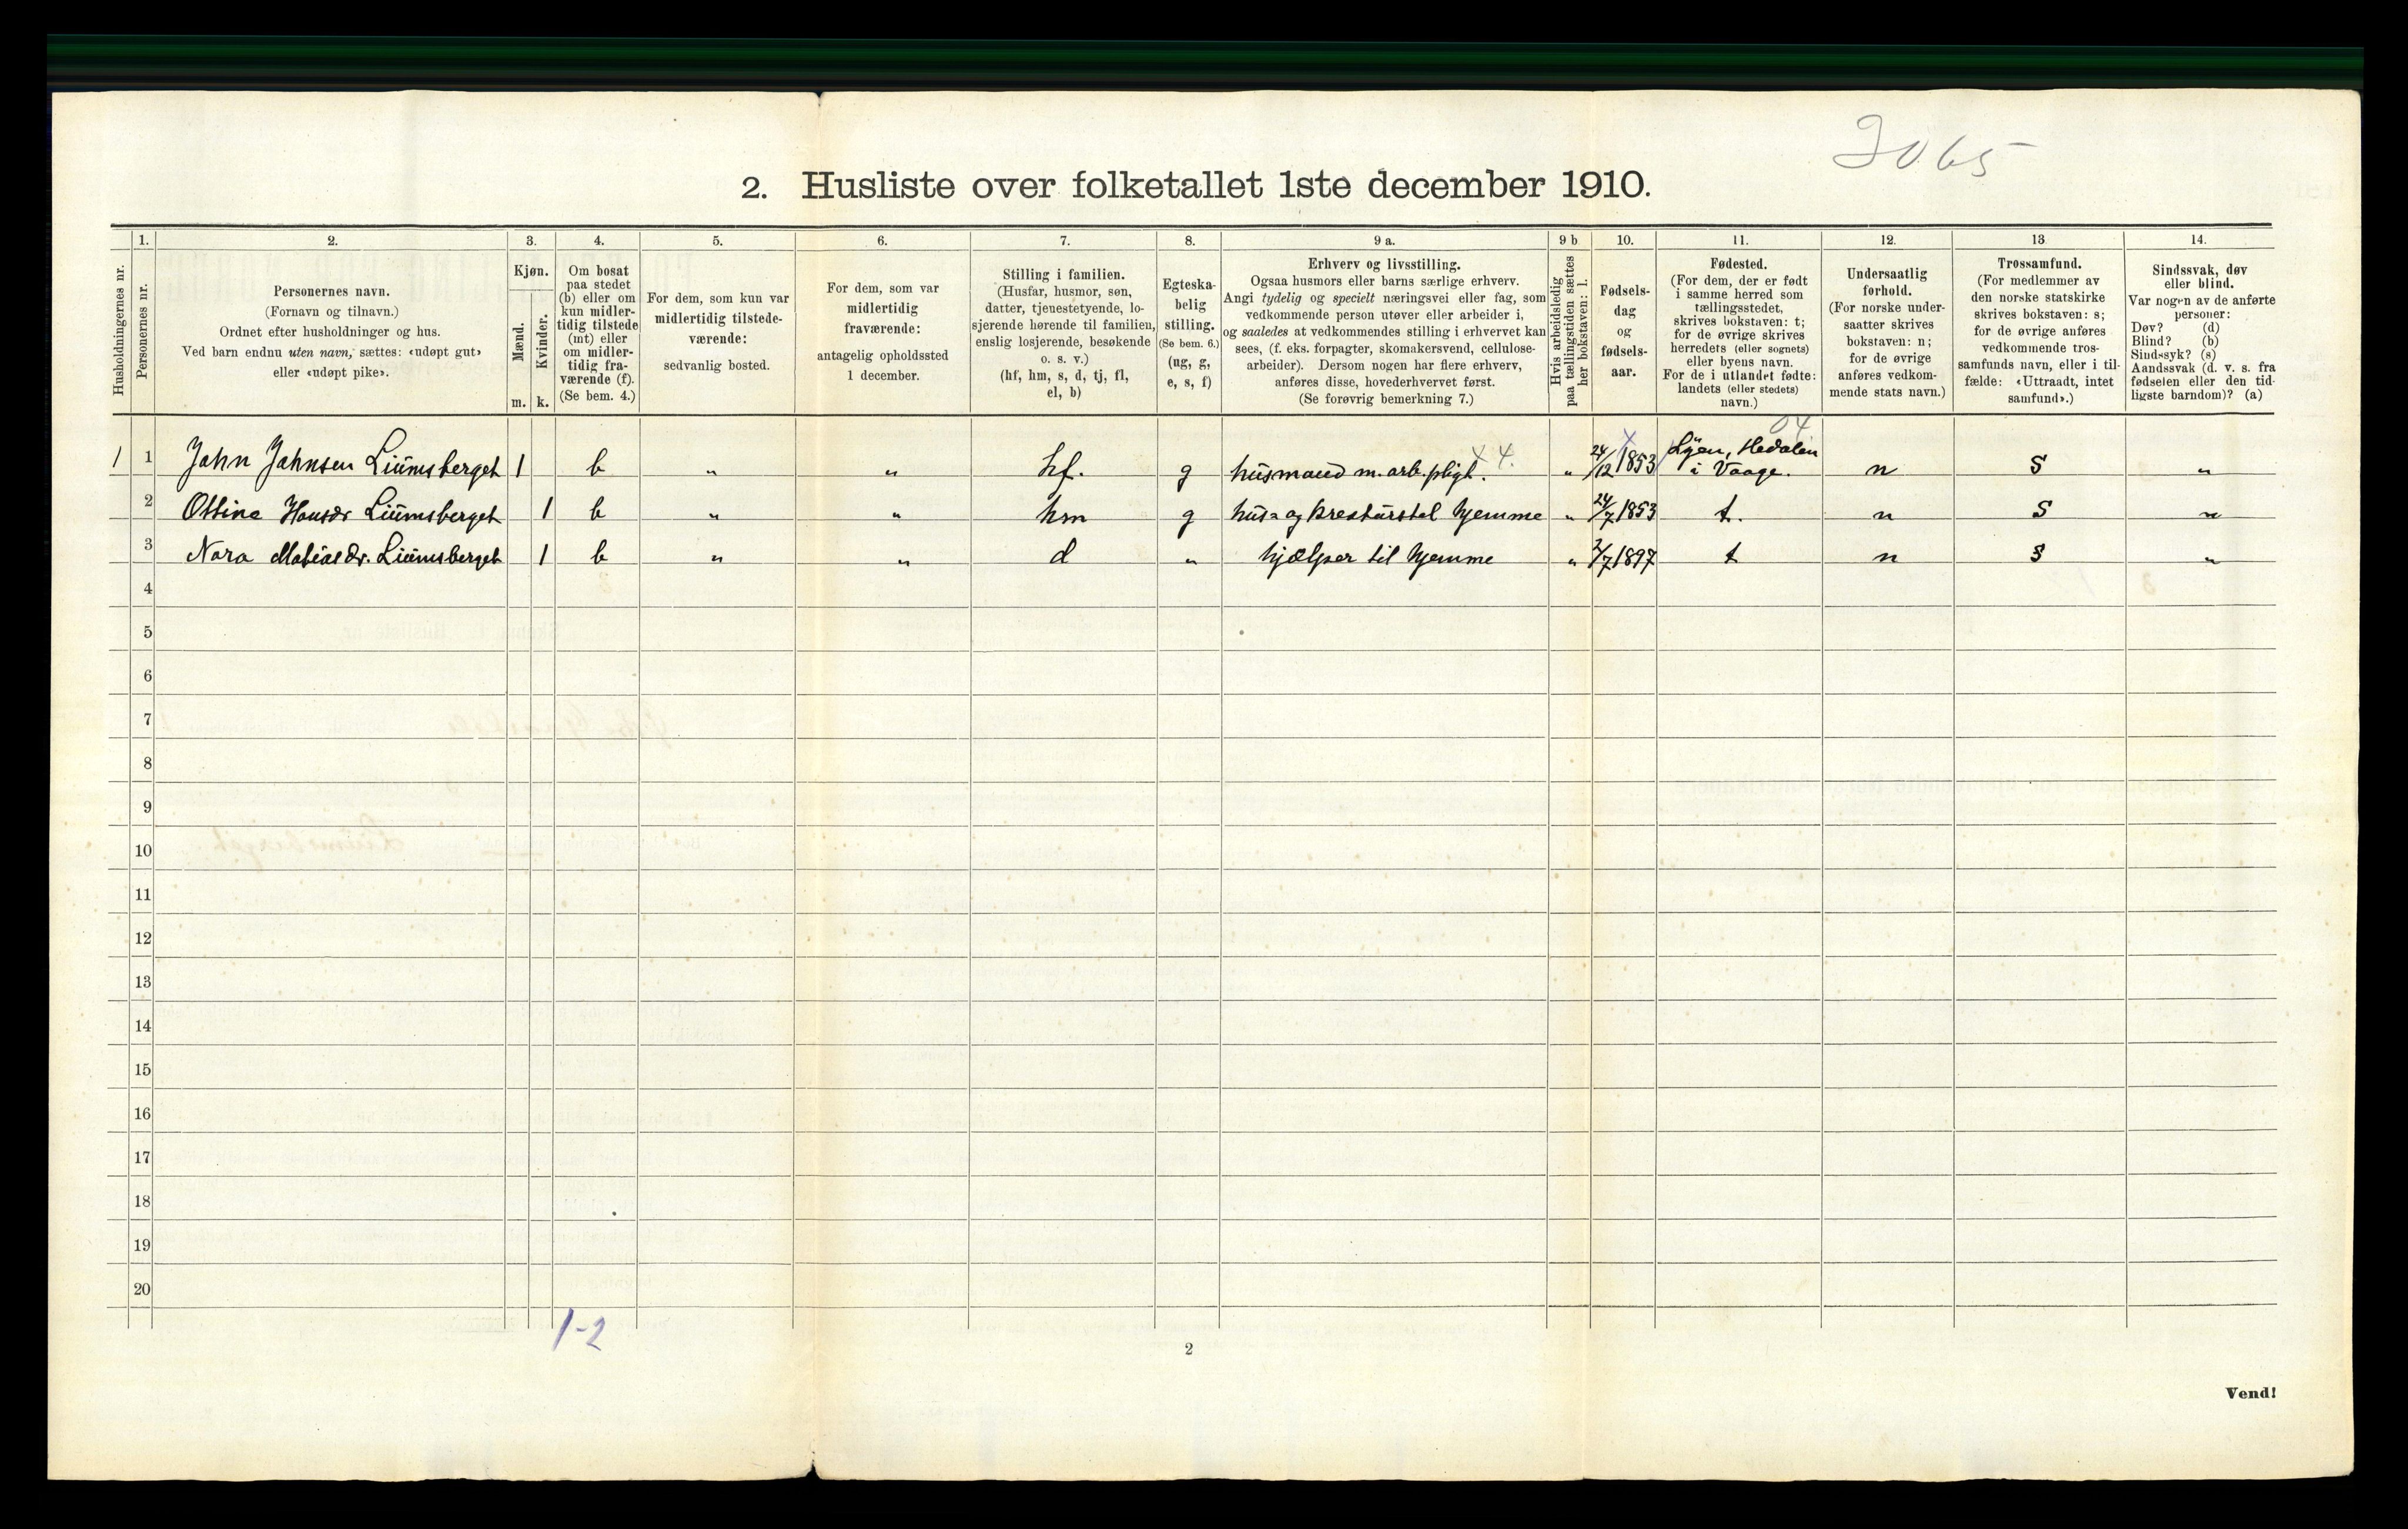 3065
2. Husliste over folketallet 1ste december 1910.
Husholdningernes nr.
1.
Personernes nr.
2.
Personernes navn.
(Fornavn og tilnavn.)
Ordnet efter husholdninger og hus.
Ved barn endnu uten navn, sættes: «udøpt gut»
eller «udøpt pike».
3.
Kjøn.
Mænd.
Kvinder.
m. k.
4.
Om bosat
paa stedet
(b) eller om
kun midler-
tidig tilstede
(mt) eller
om midler-
tidig fra-
værende (f).
(Se bem. 4.)
5.
For dem, som kun var
midlertidig tilstede-
værende:
sedvanlig bosted.
6.
For dem, som var
midlertidig
fraværende:
antagelig opholdssted
1 december.
7.
Stilling i familien.
(Husfar, husmor, søn,
datter, tjenestetyende, lo-
sjerende hørende til familien,
enslig losjerende, besøkende
o. s. v.)
(hf, hm, s, d, tj, fl,
el, b)
8.
Egteska-
belig
stilling.
(Se bem. 6.)
(ug, g,
e, s, f)
9 a.
Erhverv og livsstilling.
Ogsaa husmors eller barns særlige erhverv.
Angi tydelig og specielt næringsvei eller fag, som
vedkommende person utøver eller arbeider i,
og saaledes at vedkommendes stilling i erhvervet kan
sees, (f. eks. forpagter, skomakersvend, cellulose-
arbeider). Dersom nogen har flere erhverv,
anføres disse, hovederhvervet først.
(Se forøvrig bemerkning 7.)
9 b
Hvis arbeidsledig
paa tællingstiden sættes
her bokstaven: l.
10.
Fødsels-
dag
og
fødsels-
aar.
11.
Fødested.
(For dem, der er født
i samme herred som
tællingsstedet,
skrives bokstaven: t;
for de øvrige skrives
herredets (eller sognets)
eller byens navn.
For de i utlandet fødte:
landets (eller stedets)
navn.)
12.
Undersaatlig
forhold.
(For norske under-
saatter skrives
bokstaven: n;
for de øvrige
anføres vedkom-
mende stats navn.)
13
Trossamfund.
(For medlemmer av
den norske statskirke
skrives bokstaven: s;
for de øvrige anføres
vedkommende tros-
samfunds navn, eller i til-
fælde: «Uttraadt, intet
samfund».)
14.
Sindssvak, døv
eller blind.
Var nogen av de anførte
personer:
Døv? (d)
Blind? (b)
Sindssyk? (s)
Aandssvak (d. v. s. fra
fødselen eller den tid-
ligste barndom)? (a)
04
1 1 John Johnsen Liumsberget 1 b " " hf. g husmand m. arb. pligt. x 4. " 24/12 1853 Lyen, Hedalen i Vaage. n S "
2 Ottine Hansdr Liumsberget 1 b " " hm g hus- og kreaturstel hjemme " 24/7 1853 t. n S "
3 Nora Matiasdr. Liumsberget 1 b " " d " hjælper til hjemme " 2/7 1897 t n S "
4
5
6
7
8
9
10
11
12
13
14
15
16
17
18
19
20
1-2
2
Vend!